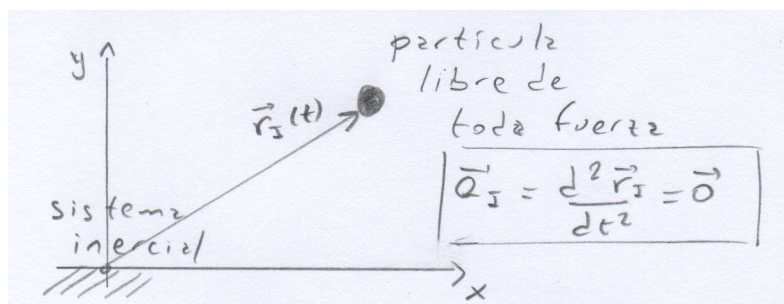 y
partícula
libre de
toda fuerza
r⃗_I(t)
a⃗_I = d²r⃗_I/dt² = 0⃗
sistema
inercial
x